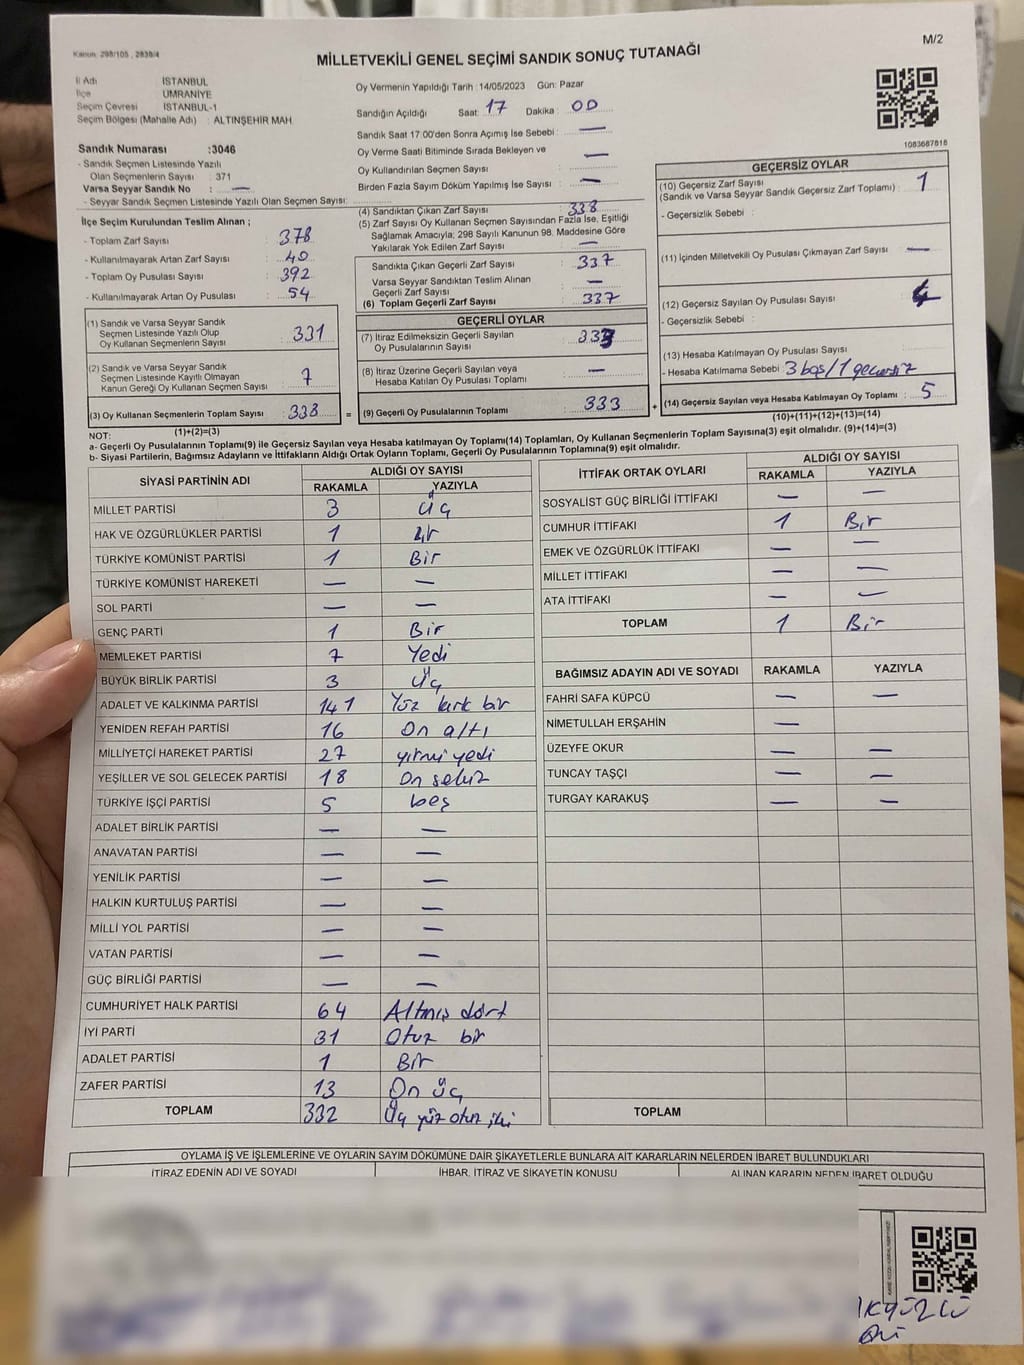 Kanun: 298/105 , 2839/4
M/2
MİLLETVEKİLİ GENEL SEÇİMİ SANDIK SONUÇ TUTANAĞI
İl Adı İSTANBUL
İlçe ÜMRANİYE
Seçim Çevresi İSTANBUL-1
Seçim Bölgesi (Mahalle Adı) : ALTINŞEHİR MAH.
Oy Vermenin Yapıldığı Tarih : 14/05/2023 Gün: Pazar
Sandığın Açıldığı Saat: 17 Dakika : 00
Sandık Saat 17:00'den Sonra Açımış İse Sebebi : —
Oy Verme Saati Bitiminde Sırada Bekleyen ve
Oy Kullandırılan Seçmen Sayısı : —
Birden Fazla Sayım Döküm Yapılmış İse Sayısı : —
1083687818
Sandık Numarası :3046
- Sandık Seçmen Listesinde Yazılı
Olan Seçmenlerin Sayısı : 371
Varsa Seyyar Sandık No : —
- Seyyar Sandık Seçmen Listesinde Yazılı Olan Seçmen Sayısı:
İlçe Seçim Kurulundan Teslim Alınan ;
- Toplam Zarf Sayısı : 378
- Kullanılmayarak Artan Zarf Sayısı : 40
- Toplam Oy Pusulası Sayısı : 392
- Kullanılmayarak Artan Oy Pusulası : 54
(1) Sandık ve Varsa Seyyar Sandık
Seçmen Listesinde Yazılı Olup
Oy Kullanan Seçmenlerin Sayısı : 331
(2) Sandık ve Varsa Seyyar Sandık
Seçmen Listesinde Kayıtlı Olmayan
Kanun Gereği Oy Kullanan Seçmen Sayısı : 7
(3) Oy Kullanan Seçmenlerin Toplam Sayısı : 338
(1)+(2)=(3)
(4) Sandıktan Çıkan Zarf Sayısı : 338
(5) Zarf Sayısı Oy Kullanan Seçmen Sayısından Fazla İse, Eşitliği
Sağlamak Amacıyla; 298 Sayılı Kanunun 98. Maddesine Göre
Yakılarak Yok Edilen Zarf Sayısı : —
Sandıkta Çıkan Geçerli Zarf Sayısı : 337
Varsa Seyyar Sandıktan Teslim Alınan
Geçerli Zarf Sayısı : —
(6) Toplam Geçerli Zarf Sayısı : 337
GEÇERLİ OYLAR
(7) İtiraz Edilmeksizin Geçerli Sayılan
Oy Pusulalarının Sayısı : 333
(8) İtiraz Üzerine Geçerli Sayılan veya
Hesaba Katılan Oy Pusulası Toplamı : —
= (9) Geçerli Oy Pusulalarının Toplamı : 333
GEÇERSİZ OYLAR
(10) Geçersiz Zarf Sayısı : 1
(Sandık ve Varsa Seyyar Sandık Geçersiz Zarf Toplamı)
- Geçersizlik Sebebi :
(11) İçinden Milletvekili Oy Pusulası Çıkmayan Zarf Sayısı : —
(12) Geçersiz Sayılan Oy Pusulası Sayısı : 4
- Geçersizlik Sebebi :
(13) Hesaba Katılmayan Oy Pusulası Sayısı :
- Hesaba Katılmama Sebebi : 3 boş/1 geçersiz
+ (14) Geçersiz Sayılan veya Hesaba Katılmayan Oy Toplamı : 5
(10)+(11)+(12)+(13)=(14)
NOT:
a- Geçerli Oy Pusulalarının Toplamı(9) ile Geçersiz Sayılan veya Hesaba katılmayan Oy Toplamı(14) Toplamları, Oy Kullanan Seçmenlerin Toplam Sayısına(3) eşit olmalıdır. (9)+(14)=(3)
b- Siyasi Partilerin, Bağımsız Adayların ve İttifakların Aldığı Ortak Oyların Toplamı, Geçerli Oy Pusulalarının Toplamına(9) eşit olmalıdır.
SİYASİ PARTİNİN ADI ALDIĞI OY SAYISI
RAKAMLA YAZIYLA
MİLLET PARTİSİ 3 Üç
HAK VE ÖZGÜRLÜKLER PARTİSİ 1 Bir
TÜRKİYE KOMÜNİST PARTİSİ 1 Bir
TÜRKİYE KOMÜNİST HAREKETİ — —
SOL PARTİ — —
GENÇ PARTİ 1 Bir
MEMLEKET PARTİSİ 7 Yedi
BÜYÜK BİRLİK PARTİSİ 3 Üç
ADALET VE KALKINMA PARTİSİ 141 Yüz kırk bir
YENİDEN REFAH PARTİSİ 16 On altı
MİLLİYETÇİ HAREKET PARTİSİ 27 yirmi yedi
YEŞİLLER VE SOL GELECEK PARTİSİ 18 On sekiz
TÜRKİYE İŞÇİ PARTİSİ 5 beş
ADALET BİRLİK PARTİSİ — —
ANAVATAN PARTİSİ — —
YENİLİK PARTİSİ — —
HALKIN KURTULUŞ PARTİSİ — —
MİLLİ YOL PARTİSİ — —
VATAN PARTİSİ — —
GÜÇ BİRLİĞİ PARTİSİ — —
CUMHURİYET HALK PARTİSİ 64 Altmış dört
İYİ PARTİ 31 Otuz bir
ADALET PARTİSİ 1 Bir
ZAFER PARTİSİ 13 On üç
TOPLAM 332 Üç yüz otuz iki
İTTİFAK ORTAK OYLARI ALDIĞI OY SAYISI
RAKAMLA YAZIYLA
SOSYALİST GÜÇ BİRLİĞİ İTTİFAKI — —
CUMHUR İTTİFAKI 1 Bir
EMEK VE ÖZGÜRLÜK İTTİFAKI — —
MİLLET İTTİFAKI — —
ATA İTTİFAKI — —
TOPLAM 1 Bir
BAĞIMSIZ ADAYIN ADI VE SOYADI RAKAMLA YAZIYLA
FAHRİ SAFA KÜPCÜ — —
NİMETULLAH ERŞAHİN —
ÜZEYFE OKUR — —
TUNCAY TAŞÇI — —
TURGAY KARAKUŞ — —
TOPLAM
OYLAMA İŞ VE İŞLEMLERİNE VE OYLARIN SAYIM DÖKÜMÜNE DAİR ŞİKAYETLERLE BUNLARA AİT KARARLARIN NELERDEN İBARET BULUNDUKLARI
İTİRAZ EDENİN ADI VE SOYADI İHBAR, İTİRAZ VE ŞİKAYETİN KONUSU ALINAN KARARIN NEDEN İBARET OLDUĞU